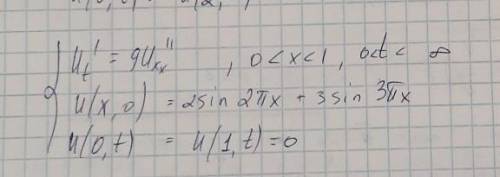 u't = 9u''xx , 0 < x < 1, 0 < t < ∞
u(x, 0) = 2 sin 2πx + 3 sin 3πx
u(0, t) = u(1, t) = 0